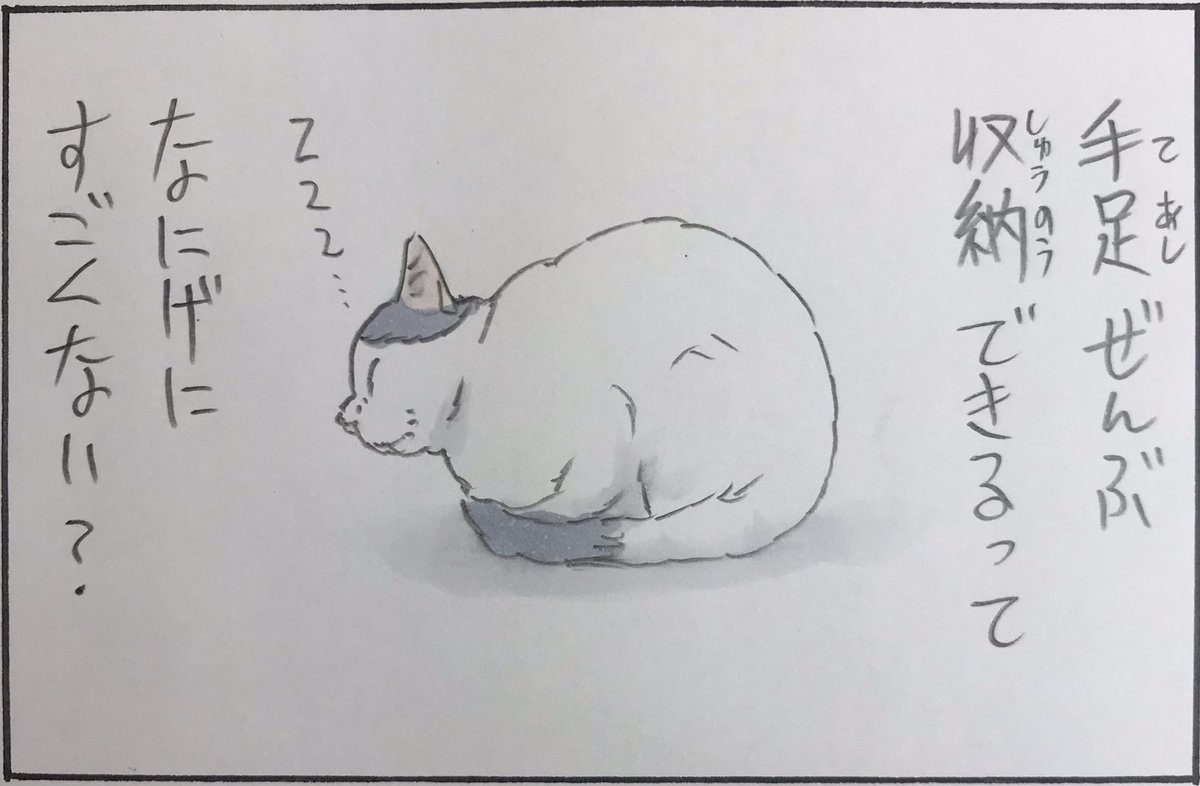 手足ぜんぶ
てあし
収納できるって
しゅうのう
zzz…
なにげに
すごくない?